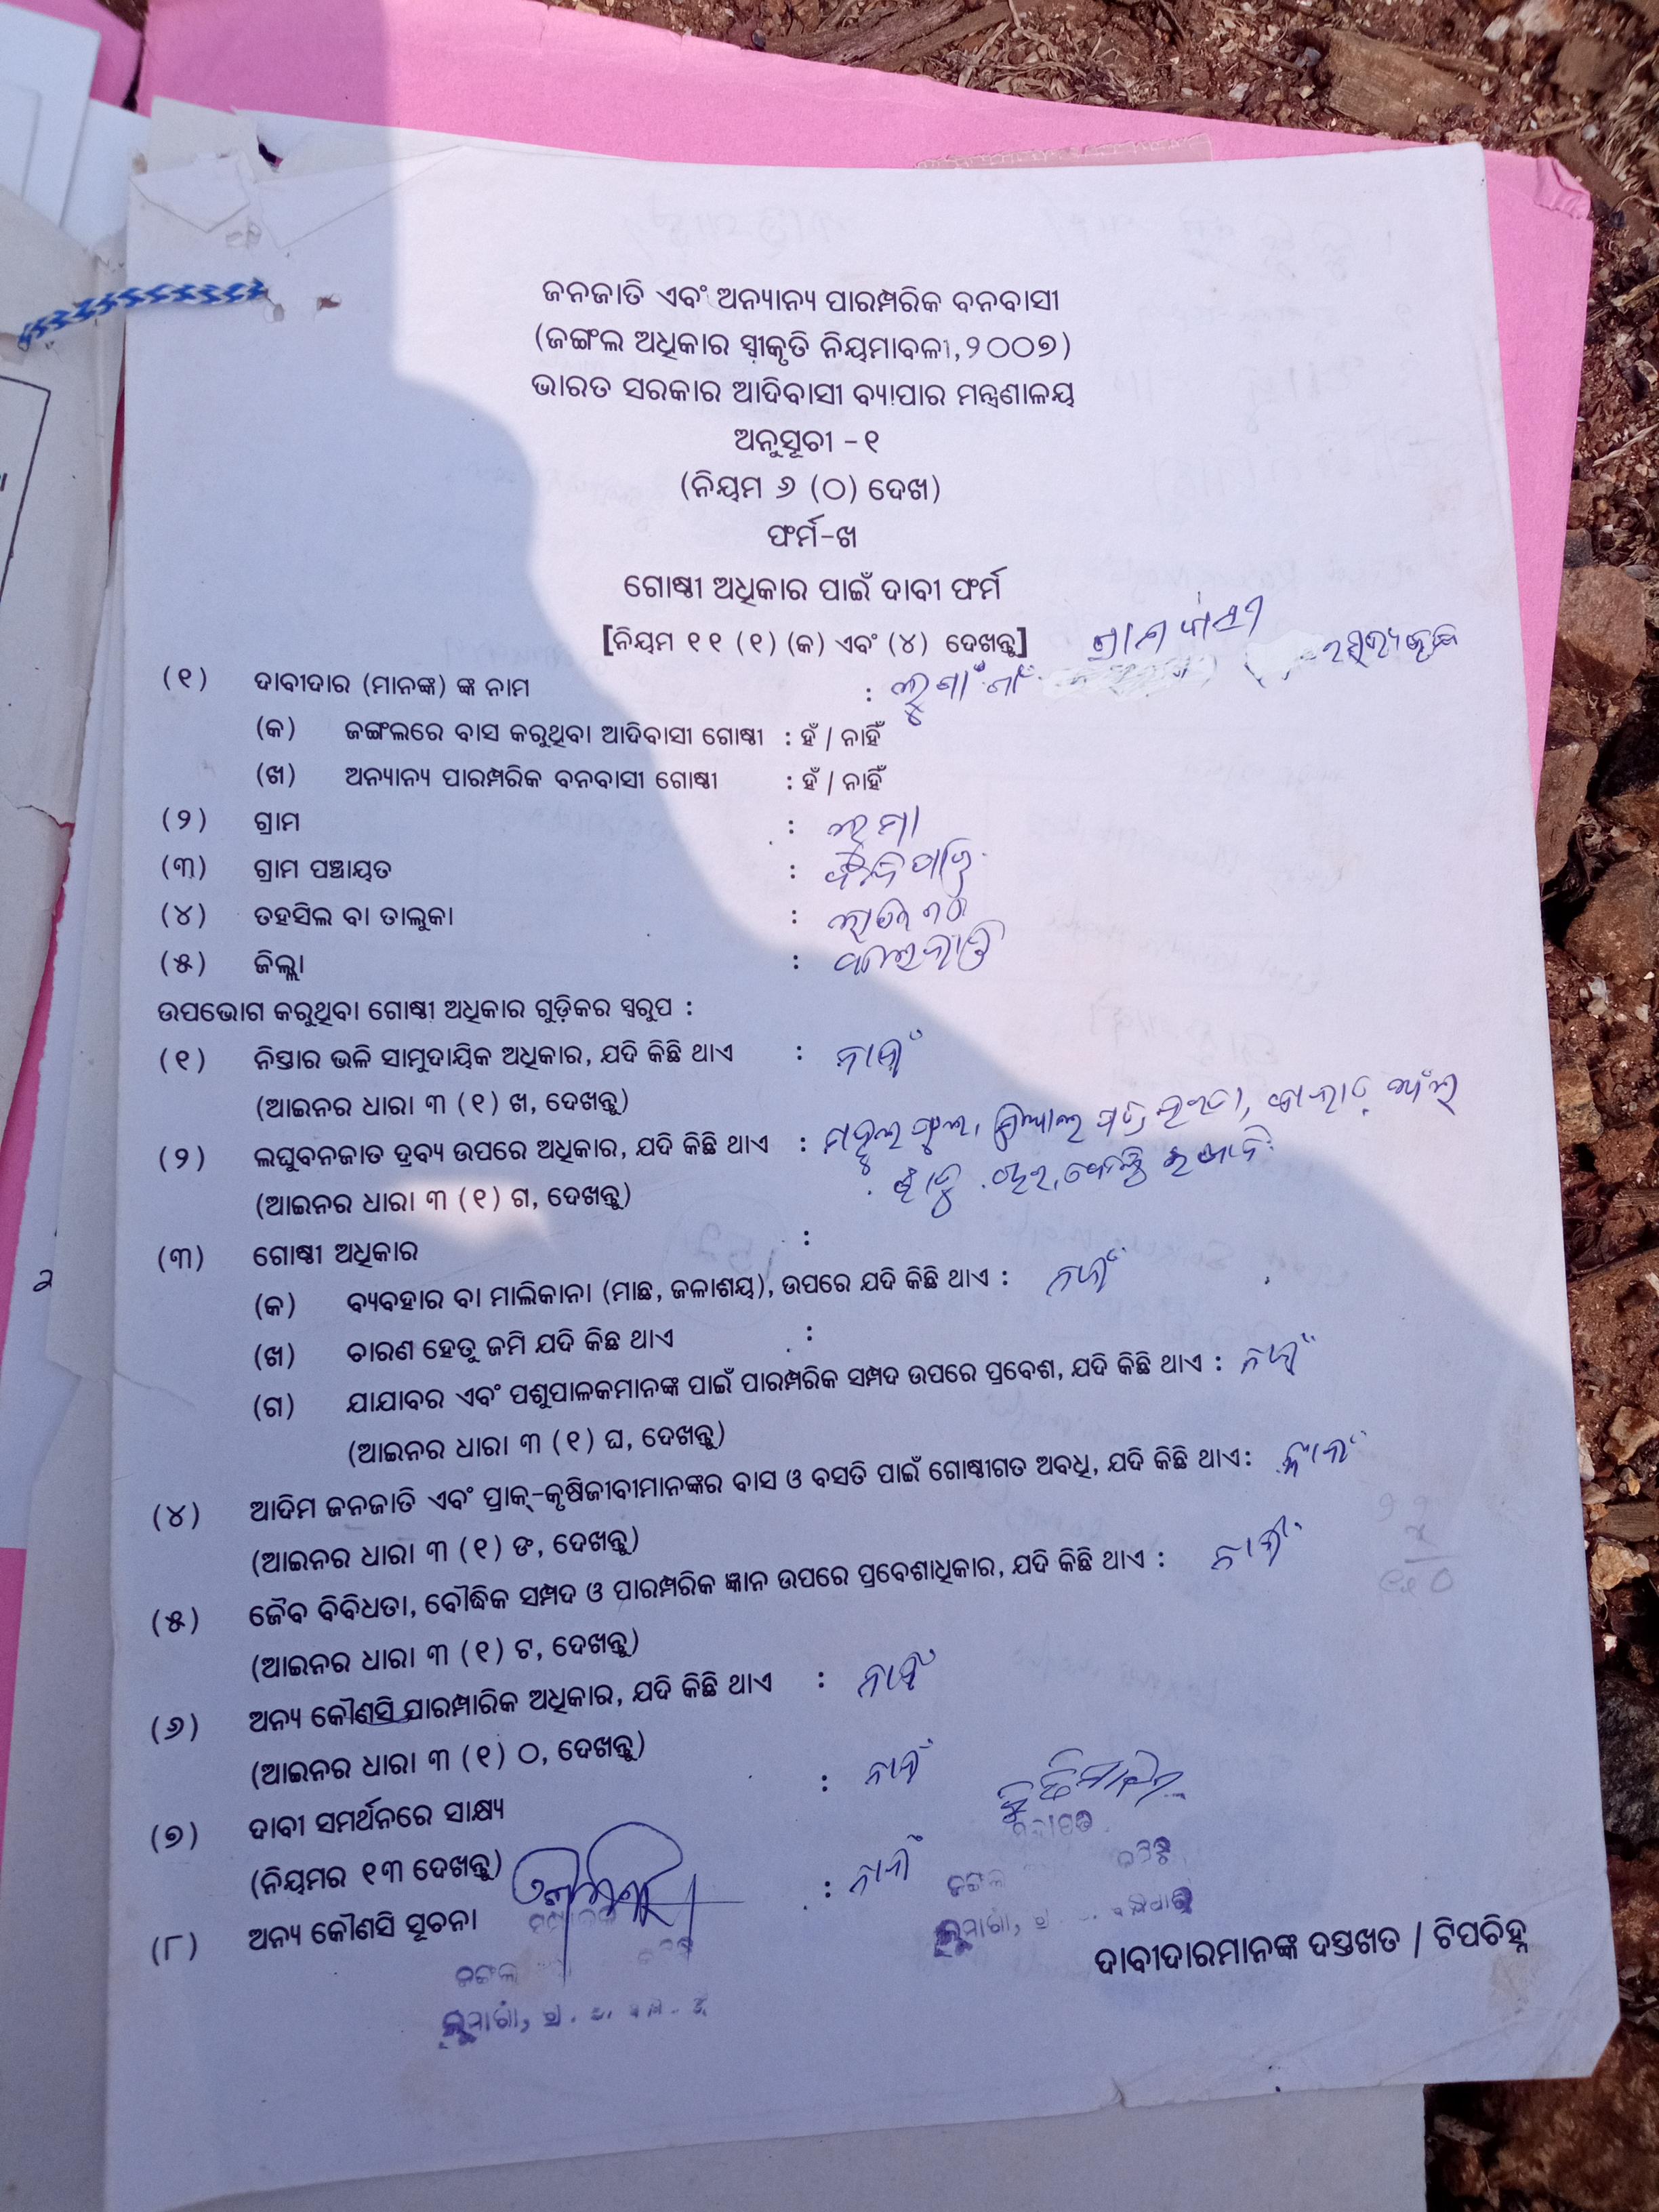 ଜନଜାତି ଏବଂ ଅନ୍ୟାନ୍ୟ ପାରମ୍ପରିକ ବନବାସୀ
(ଜଙ୍ଗଲ ଅଧିକାର ସ୍ୱୀକୃତି ନିୟମାବଳୀ,୨୦୦୭)
ଭାରତ ସରକାର ଆଦିବାସୀ ବ୍ୟାପାର ମନ୍ତ୍ରଣାଳୟ
ଅନୁସୂଚୀ -୧
(ନିୟମ ୬ (୦) ଦେଖ)
ଫର୍ମ-ଖ
ଗୋଷ୍ଠୀ ଅଧିକାର ପାଇଁ ଦାବୀ ଫର୍ମ
[ନିୟମ ୧୧ (୧) (କ) ଏବଂ (୪) ଦେଖନ୍ତୁ]
(୧) ଦାବୀଦାର (ମାନଙ୍କ) ଙ୍କ ନାମ :
(କ) ଜଙ୍ଗଲରେ ବାସ କରୁଥିବା ଆଦିବାସୀ ଗୋଷ୍ଠୀ : ହଁ / ନାହିଁ
(ଖ) ଅନ୍ୟାନ୍ୟ ପାରମ୍ପରିକ ବନବାସୀ ଗୋଷ୍ଠୀ : ହଁ / ନାହିଁ
(୨) ଗ୍ରାମ :
(୩) ଗ୍ରାମ ପଞ୍ଚାୟତ :
(୪) ତହସିଲ ବା ତାଲୁକା :
(୫) ଜିଲ୍ଲା :
ଉପଭୋଗ କରୁଥିବା ଗୋଷ୍ଠୀ ଅଧିକାର ଗୁଡ଼ିକର ସ୍ୱରୁପ :
(୧) ନିସ୍ତାର ଭଳି ସାମୁଦାୟିକ ଅଧିକାର, ଯଦି କିଛି ଥାଏ : ନାହିଁ
(ଆଇନର ଧାରା ୩ (୧) ଖ, ଦେଖନ୍ତୁ)
(୨) ଲଘୁବନଜାତ ଦ୍ରବ୍ୟ ଉପରେ ଅଧିକାର, ଯଦି କିଛି ଥାଏ : ମହୁଲ ଫୁଲ,
(ଆଇନର ଧାରା ୩ (୧) ଗ, ଦେଖନ୍ତୁ)
(୩) ଗୋଷ୍ଠୀ ଅଧିକାର :
(କ) ବ୍ୟବହାର ବା ମାଲିକାନା (ମାଛ, ଜଳାଶୟ), ଉପରେ ଯଦି କିଛି ଥାଏ : ନାହିଁ
(ଖ) ଚାରଣ ହେତୁ ଜମି ଯଦି କିଛ ଥାଏ :
(ଗ) ଯାଯାବର ଏବଂ ପଶୁପାଳକମାନଙ୍କ ପାଇଁ ପାରମ୍ପରିକ ସମ୍ପଦ ଉପରେ ପ୍ରବେଶ, ଯଦି କିଛି ଥାଏ : ନାହିଁ
(ଆଇନର ଧାରା ୩ (୧) ଘ, ଦେଖନ୍ତୁ)
(୪) ଆଦିମ ଜନଜାତି ଏବଂ ପ୍ରାକ୍-କୃଷିଜୀବୀମାନଙ୍କର ବାସ ଓ ବସତି ପାଇଁ ଗୋଷ୍ଠୀଗତ ଅବଧି, ଯଦି କିଛି ଥାଏ : ନାହିଁ
(ଆଇନର ଧାରା ୩ (୧) ଙ, ଦେଖନ୍ତୁ)
(୫) ଜୈବ ବିବିଧତା, ବୌଦ୍ଧିକ ସମ୍ପଦ ଓ ପାରମ୍ପରିକ ଜ୍ଞାନ ଉପରେ ପ୍ରବେଶାଧିକାର, ଯଦି କିଛି ଥାଏ : ନାହିଁ
(ଆଇନର ଧାରା ୩ (୧) ଟ, ଦେଖନ୍ତୁ)
(୬) ଅନ୍ୟ କୌଣସି ପାରମ୍ପାରିକ ଅଧିକାର, ଯଦି କିଛି ଥାଏ : ନାହିଁ
(ଆଇନର ଧାରା ୩ (୧) ଠ, ଦେଖନ୍ତୁ)
(୭) ଦାବୀ ସମର୍ଥନରେ ସାକ୍ଷ୍ୟ : ନାହିଁ
(ନିୟମର ୧୩ ଦେଖନ୍ତୁ)
(୮) ଅନ୍ୟ କୌଣସି ସୂଚନା : ନାହିଁ
ଦାବୀଦାରମାନଙ୍କ ଦସ୍ତଖତ / ଟିପଚିହ୍ନ